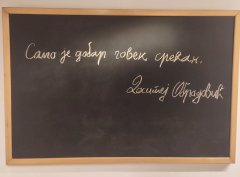 Само је добар човек срећан.
Доситеј Обрадовић